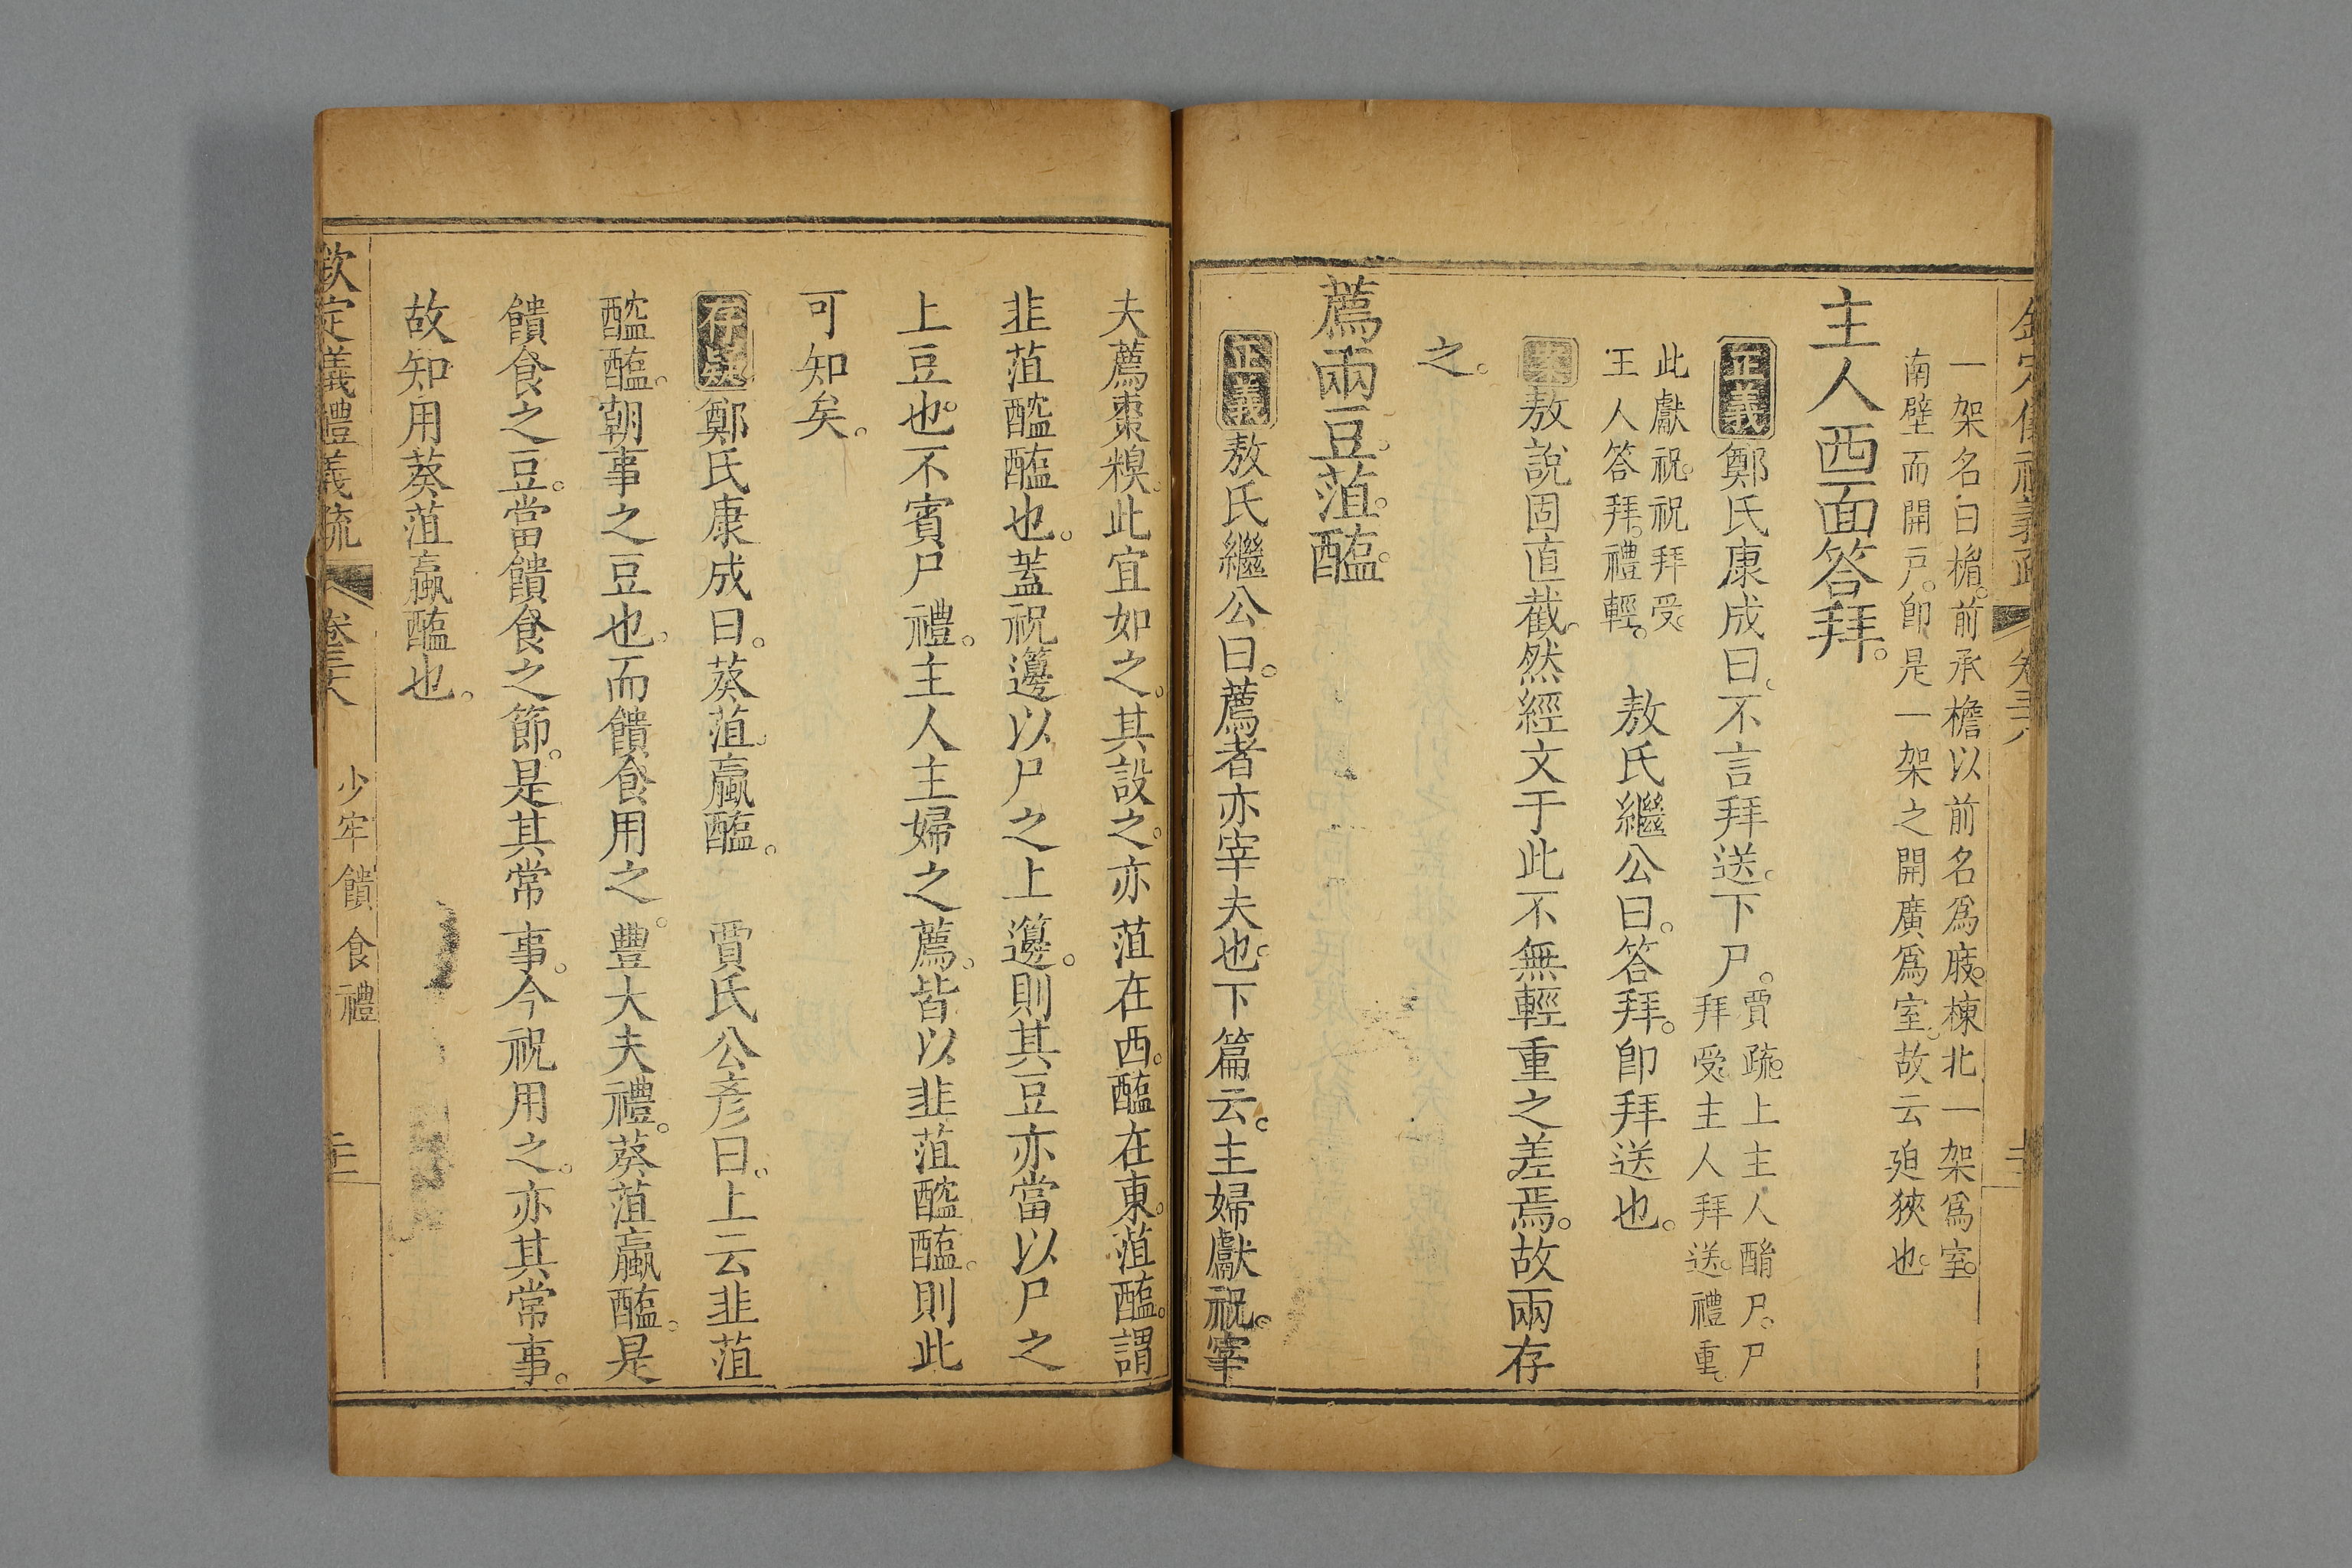 一架名曰楣。前承檐以前名爲庪。棟北一架爲室。
南壁而開戸。卽是一架之開廣爲室。故云廹狹也。
主人西面答拜。
正義鄭氏康成曰。不言拜送。下尸。賈疏。上主人酳尸。尸
拜受。主人拜送。禮重。
此獻祝。祝拜受。
主人答拜。禮輕。
敖氏繼公曰。答拜。卽拜送也。
案敖說固直截。然經文于此不無輕重之差焉。故兩存
之。
薦兩豆。菹。醢。
正義敖氏繼公曰。薦者亦宰夫也。下篇云。主婦獻祝。宰
夫薦棗糗。此宜如之。其設之。亦菹在西。醢在東。菹醢。謂
韭菹醓醢也。蓋祝籩以尸之上籩。則其豆亦當以尸之
上豆也。不賓尸禮。主人主婦之薦。皆以韭菹醓醢。則此
可知矣。
存疑鄭氏康成曰。葵菹。蠃醢。
賈氏公彥曰。上云韭菹
醓醢。朝事之豆也。而饋食用之。豐大夫禮。葵菹蠃醢。是
饋食之豆。當饋食之節。是其常事。今祝用之。亦其常事。
故知用葵菹蠃醢也。
欽定儀禮義疏
卷三十八
少牢饋食禮